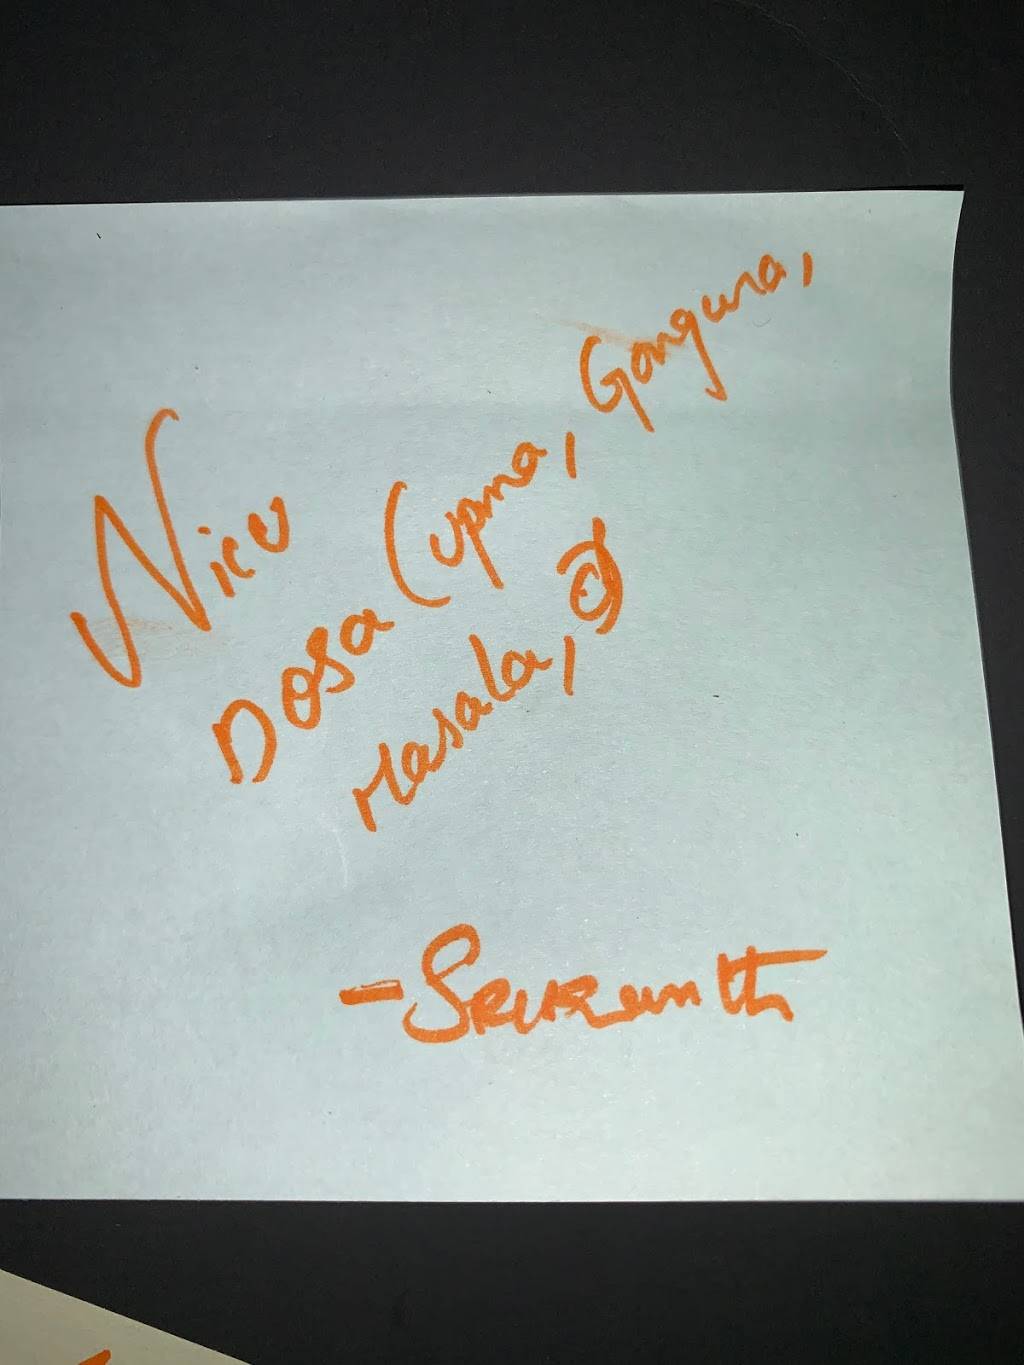 Nice
Dosa (upma, Gongura,
Masala,
- Srikanth